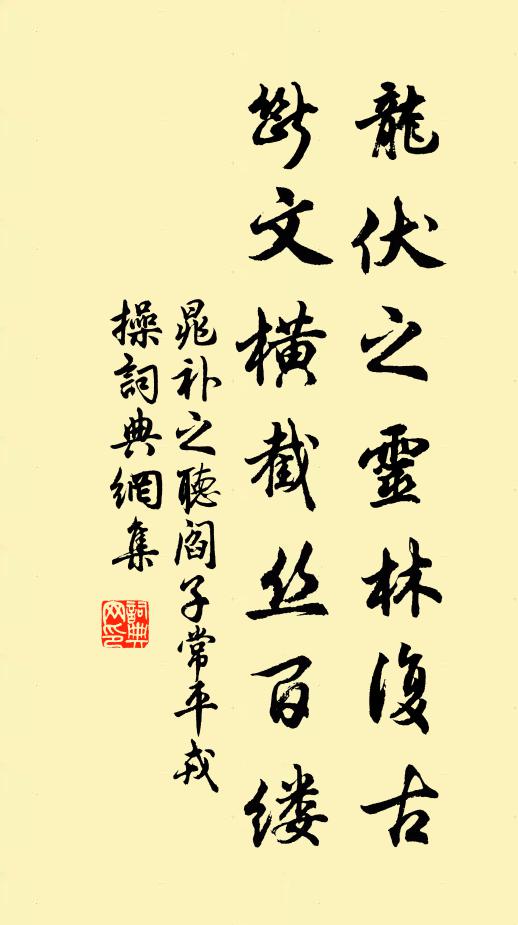 龍伏之靈林復古
斷文橫截丝百缕
晁补之聽阎子常平戎
操詞典網集
詞典網印